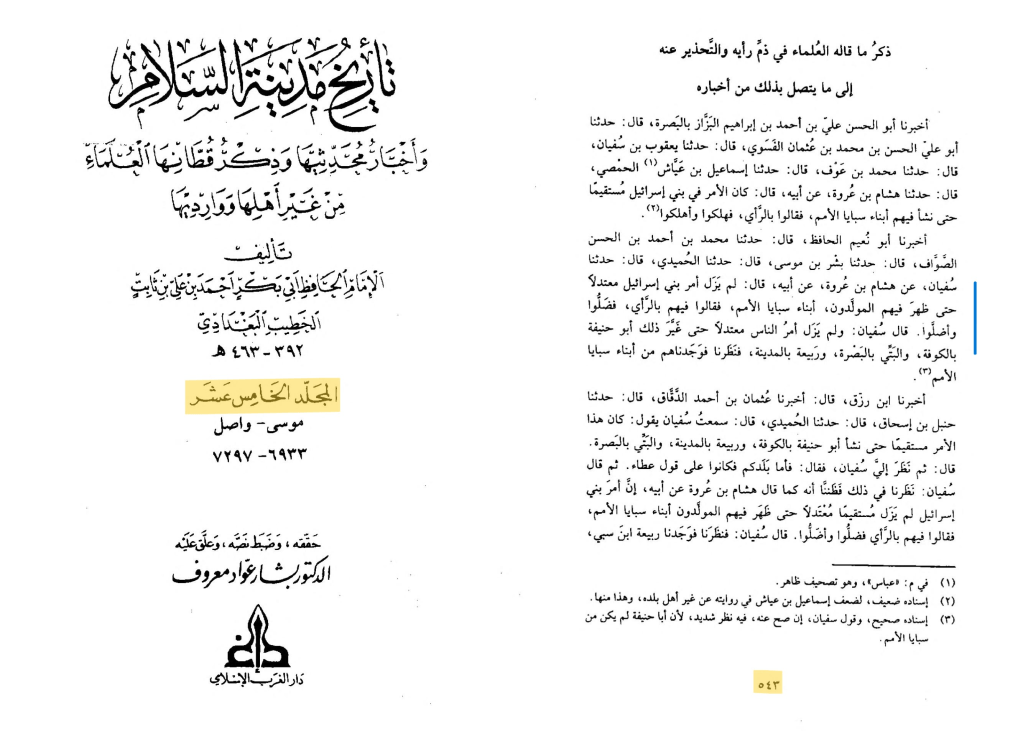 تأريخ مدينة السلام
وأخبار محدثيها وذكر قطانها العلماء
من غير أهلها ووارديها
تأليف
الإمام الحافظ أبي بكر أحمد بن علي بن ثابت
الخطيب البغدادي
٣٩٢ - ٤٦٣ هـ
المجلد الخامس عشر
موسى - واصل
٦٩٣٣ - ٧٢٩٧
حققه، وضبط نصه، وعلق عليه
الدكتور بشار عواد معروف
دار الغرب الإسلامي
ذكرُ ما قاله العُلماء في ذمِّ رأيه والتَّحذير عنه
إلى ما يتصل بذلك من أخباره
أخبرنا أبو الحسن عليّ بن أحمد بن إبراهيم البَزَّاز بالبَصرة، قال: حدثنا
أبو عليّ الحسن بن محمد بن عُثمان الفَسَوي، قال: حدثنا يعقوب بن سُفيان،
قال: حدثنا محمد بن عَوْف، قال: حدثنا إسماعيل بن عَيَّاش(١) الحمْصي،
قال: حدثنا هشام بن عُروة، عن أبيه، قال: كان الأمر في بني إسرائيل مُستقيمًا
حتى نشأ فيهم أبناء سبايا الأمم، فقالوا بالرَّأي، فهلكوا وأهلكوا(٢).
أخبرنا أبو نُعيم الحافظ، قال: حدثنا محمد بن أحمد بن الحسن
الصَّوَّاف، قال: حدثنا بشْر بن موسى، قال: حدثنا الحُميدي، قال: حدثنا
سُفيان، عن هشام بن عُروة، عن أبيه، قال: لم يَزَل أمر بني إسرائيل معتدلاً
حتى ظهرَ فيهم المولَّدون، أبناء سبايا الأمم، فقالوا فيهم بالرَّأي، فضَلُّوا
وأضلُّوا. قال سُفيان: ولم يَزَل أمرُ الناس معتدلاً حتى غَيَّرَ ذلك أبو حنيفة
بالكوفة، والبَتِّي بالبَصْرة، وربيعة بالمدينة، فنَظَرنا فوَجَدناهم من أبناء سبايا
الأمم(٣).
أخبرنا ابن رزق، قال: أخبرنا عُثمان بن أحمد الدَّقَّاق، قال: حدثنا
حنبل بن إسحاق، قال: حدثنا الحُميدي، قال: سمعتُ سُفيان يقول: كان هذا
الأمر مستقيمًا حتى نشأ أبو حنيفة بالكوفة، وربيعة بالمدينة، والبَتِّي بالبَصرة.
قال: ثم نَظَرَ إليَّ سُفيان، فقال: فأما بلَدكم فكانوا على قول عطاء. ثم قال
سُفيان: نَظَرنا في ذلك فَظَننَّا أنه كما قال هشام بن عُروة عن أبيه، إنَّ أمرَ بني
إسرائيل لم يَزَل مُستقيمًا مُعْتدلاً حتى ظَهَر فيهم المولَّدون أبناء سبايا الأمم،
فقالوا فيهم بالرَّأي فضلُّوا وأضَلُّوا. قال سُفيان: فنظَرنا فوَجَدنا ربيعة ابنَ سبي،
(١) في م: «عباس»، وهو تصحيف ظاهر.
(٢) إسناده ضعيف، لضعف إسماعيل بن عياش في روايته عن غير أهل بلده، وهذا منها.
(٣) إسناده صحيح، وقول سفيان، إن صح عنه، فيه نظر شديد، لأن أبا حنيفة لم يكن من
سبايا الأمم.
٥٤٣